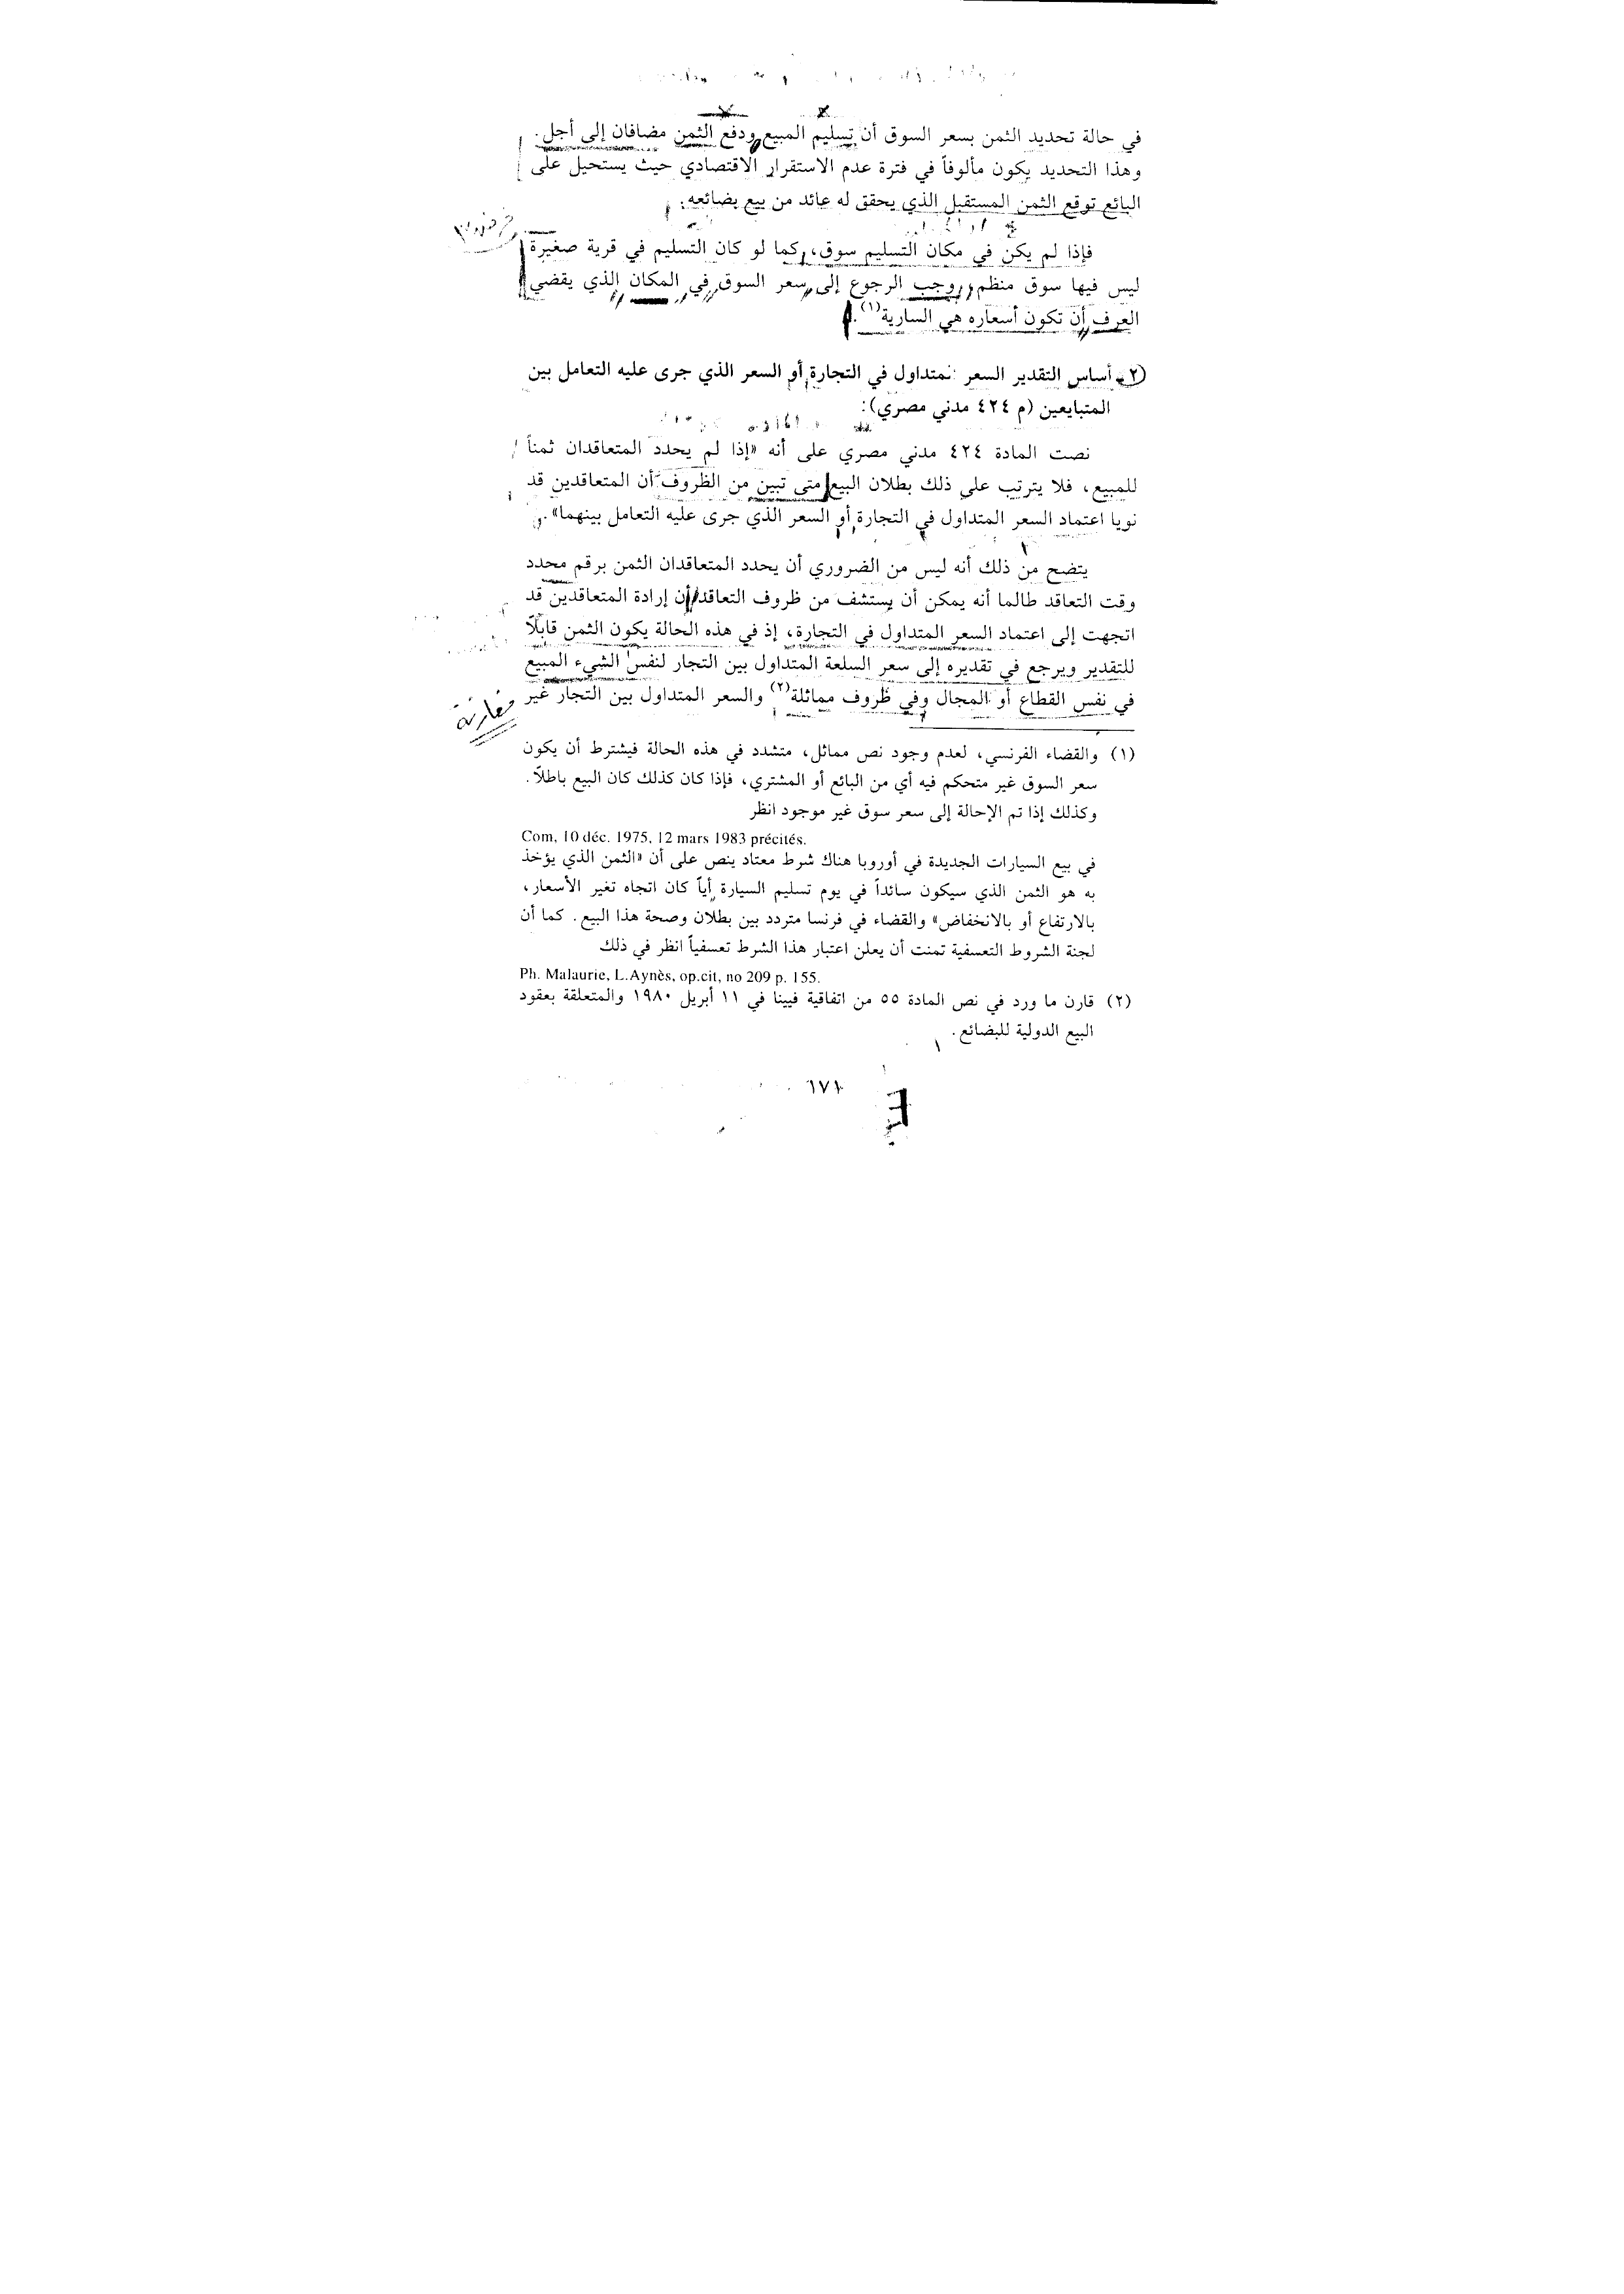 في حالة تحديد الثمن بسعر السوق أن تسليم المبيع ودفع الثمن مضافان إلى أجل.
وهذا التحديد يكون مألوفاً في فترة عدم الاستقرار الاقتصادي حيث يستحيل على
البائع توقع الثمن المستقبل الذي يحقق له عائد من بيع بضائعه.
فإذا لم يكن في مكان التسليم سوق، كما لو كان التسليم في قرية صغيرة
ليس فيها سوق منظم، وجب الرجوع إلى سعر السوق في المكان الذي يقضي
العرف أن تكون أسعاره هي السارية(١).
٢ - أساس التقدير السعر المتداول في التجارة أو السعر الذي جرى عليه التعامل بين
المتبايعين (م ٤٢٤ مدني مصري):
نصت المادة ٤٢٤ مدني مصري على أنه «إذا لم يحدد المتعاقدان ثمناً
للمبيع، فلا يترتب على ذلك بطلان البيع متى تبين من الظروف أن المتعاقدين قد
نويا اعتماد السعر المتداول في التجارة أو السعر الذي جرى عليه التعامل بينهما».
يتضح من ذلك أنه ليس من الضروري أن يحدد المتعاقدان الثمن برقم محدد
وقت التعاقد طالما أنه يمكن أن يستشف من ظروف التعاقد أن إرادة المتعاقدين قد
اتجهت إلى اعتماد السعر المتداول في التجارة، إذ في هذه الحالة يكون الثمن قابلاً
للتقدير ويرجع في تقديره إلى سعر السلعة المتداول بين التجار لنفس الشيء المبيع
في نفس القطاع أو المجال وفي ظروف مماثلة(٢) والسعر المتداول بين التجار غير
مقارنة
(١) والقضاء الفرنسي، لعدم وجود نص مماثل، متشدد في هذه الحالة فيشترط أن يكون
سعر السوق غير متحكم فيه أي من البائع أو المشتري، فإذا كان كذلك كان البيع باطلاً.
وكذلك إذا تم الإحالة إلى سعر سوق غير موجود انظر
Com, 10 déc. 1975, 12 mars 1983 précités.
في بيع السيارات الجديدة في أوروبا هناك شرط معتاد ينص على أن «الثمن الذي يؤخذ
به هو الثمن الذي سيكون سائداً في يوم تسليم السيارة أياً كان اتجاه تغير الأسعار،
بالارتفاع أو بالانخفاض» والقضاء في فرنسا متردد بين بطلان وصحة هذا البيع. كما أن
لجنة الشروط التعسفية تمنت أن يعلن اعتبار هذا الشرط تعسفياً انظر في ذلك
Ph. Malaurie, L.Aynès, op.cit, no 209 p. 155.
(٢) قارن ما ورد في نص المادة ٥٥ من اتفاقية فيينا في ١١ أبريل ١٩٨٠ والمتعلقة بعقود
البيع الدولية للبضائع.
١٧١